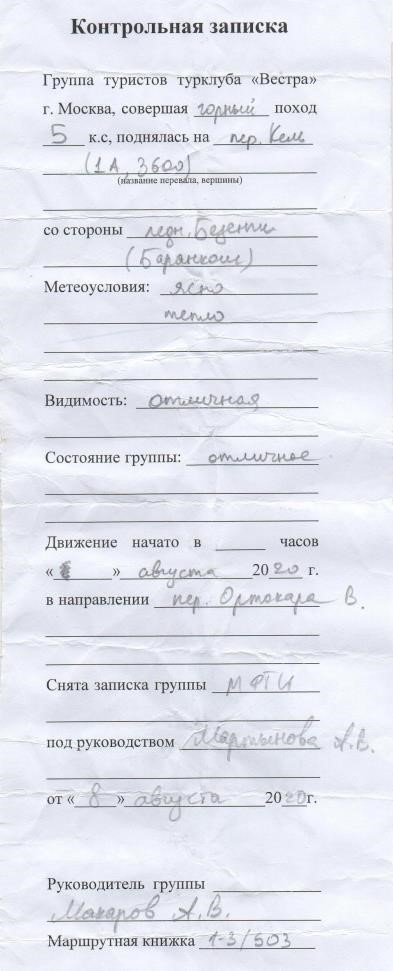 Контрольная записка
Группа туристов турклуба «Вестра»
г. Москва, совершая горный поход
5 к.с, поднялась на пер. Кель
(1А, 3600)
(название перевала, вершины)
со стороны ледн. Безенги
(Баранкош)
Метеоусловия: ясно
тепло
Видимость: отличная
Состояние группы: отличное
Движение начато в часов
« » августа 2020 г.
в направлении пер. Ортокара В.
Снята записка группы МФТИ
под руководством Мартынова А.В.
от « 8 » августа 2020г.
Руководитель группы
Макаров А.В.
Маршрутная книжка 1-3/503